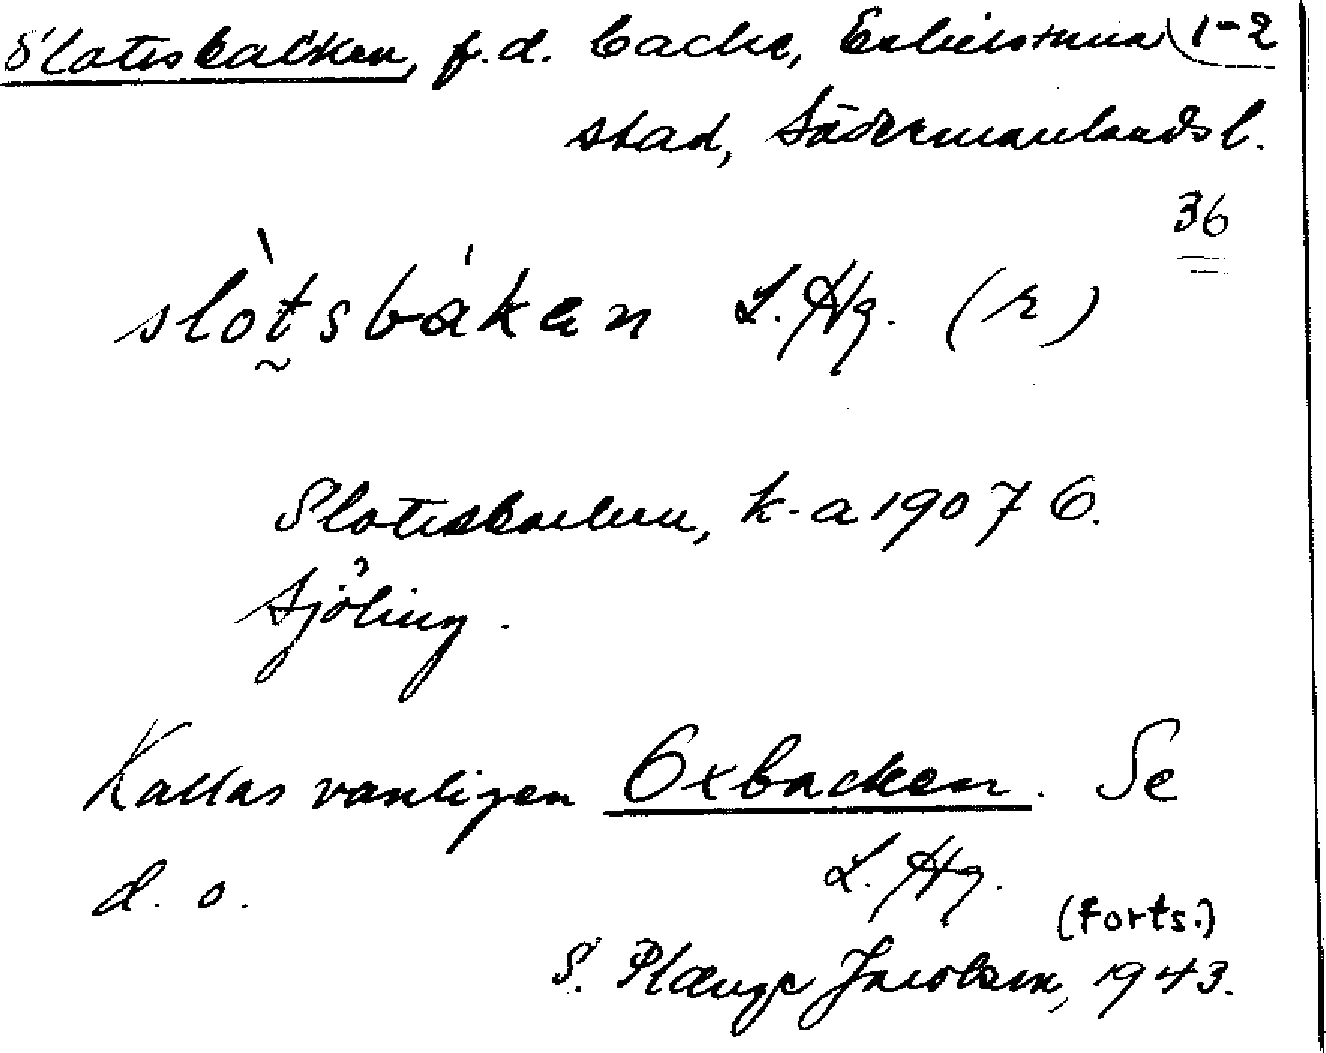 Slottsbacken, f.d. backe, Eskilstuna 1-2
stad, Södermanlands l.
36
slòtsbákan L. Hg. (r)
Slottsbacken, k-a 1907 O.
Sjöling.
Kallas vanligen Oxbacken. Se
d. o. L. Hg.
(Forts.)
S. Plænge Jacobson, 1943.